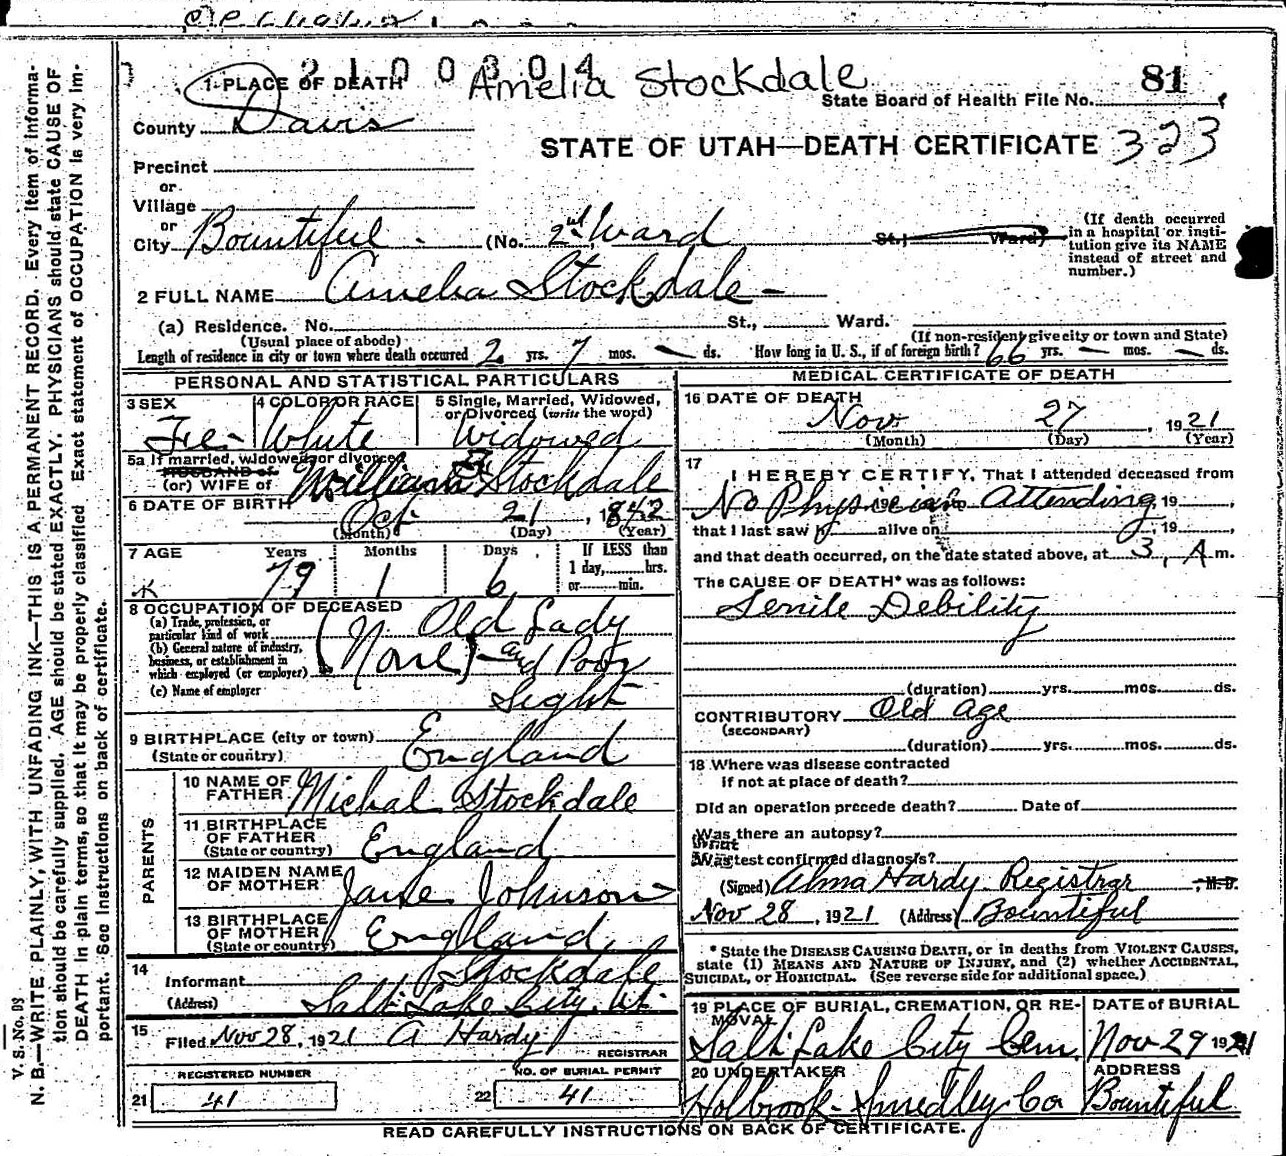 2100304
Amelia Stockdale
81
1 PLACE OF DEATH
State Board of Health File No.
County Davis
STATE OF UTAH—DEATH CERTIFICATE 323
Precinct
or
Village
or
City Bountiful (No. 2nd Ward St.; Ward)
(If death occurred in a hospital or institution give its NAME instead of street and number.)
2 FULL NAME Amelia Stockdale
(a) Residence. No. St., Ward.
(Usual place of abode) (If non-resident give city or town and State)
Length of residence in city or town where death occurred 2 yrs. 7 mos. — ds. How long in U. S., if of foreign birth? 66 yrs. — mos. — ds.
PERSONAL AND STATISTICAL PARTICULARS
3 SEX Fe- 4 COLOR OR RACE White 5 Single, Married, Widowed, or Divorced (write the word) Widowed
5a If married, widowed or divorced
HUSBAND of
(or) WIFE of William Stockdale
6 DATE OF BIRTH Oct 21, 1842
(Month) (Day) (Year)
7 AGE Years 79 Months 1 Days 6 If LESS than
1 day, hrs.
or min.
8 OCCUPATION OF DECEASED
(a) Trade, profession, or
particular kind of work
(b) General nature of industry,
business, or establishment in
which employed (or employer)
(None) Old Lady
and Poor
Sight
(c) Name of employer
9 BIRTHPLACE (city or town)
(State or country) England
PARENTS
10 NAME OF
FATHER Michal Stockdale
11 BIRTHPLACE
OF FATHER
(State or country) England
12 MAIDEN NAME
OF MOTHER Jane Johnson
13 BIRTHPLACE
OF MOTHER
(State or country) England
14
Informant J Stockdale
(Address) Salt Lake City, Ut.
15
Filed Nov 28, 1921 A Hardy
REGISTRAR
REGISTERED NUMBER
21 41
NO. OF BURIAL PERMIT
22 41
MEDICAL CERTIFICATE OF DEATH
16 DATE OF DEATH
Nov 27, 1921
(Month) (Day) (Year)
17
I HEREBY CERTIFY, That I attended deceased from
No Physician Attending, 19
that I last saw h alive on , 19
and that death occurred, on the date stated above, at 3, A m.
The CAUSE OF DEATH* was as follows:
Senile Debility
(duration) yrs. mos. ds.
CONTRIBUTORY Old age
(SECONDARY)
(duration) yrs. mos. ds.
18 Where was disease contracted
if not at place of death?
Did an operation precede death? Date of
Was there an autopsy?
What test confirmed diagnosis?
(Signed) Alma Hardy Registrar, M. D.
Nov 28, 1921 (Address) Bountiful
* State the DISEASE CAUSING DEATH, or in deaths from VIOLENT CAUSES,
state (1) MEANS AND NATURE OF INJURY, and (2) whether ACCIDENTAL,
SUICIDAL, or HOMICIDAL. (See reverse side for additional space.)
19 PLACE OF BURIAL, CREMATION, OR RE-
MOVAL
Salt Lake City Cem.
DATE OF BURIAL
Nov 29 1921
20 UNDERTAKER
Holbrook-Smedley Co
ADDRESS
Bountiful
READ CAREFULLY INSTRUCTIONS ON BACK OF CERTIFICATE.
V. S. No. 93
N. B.—WRITE PLAINLY, WITH UNFADING INK—THIS IS A PERMANENT RECORD. Every item of informa-
tion should be carefully supplied. AGE should be stated EXACTLY. PHYSICIANS should state CAUSE OF
DEATH in plain terms, so that it may be properly classified. Exact statement of OCCUPATION is very im-
portant. See Instructions on back of certificate.